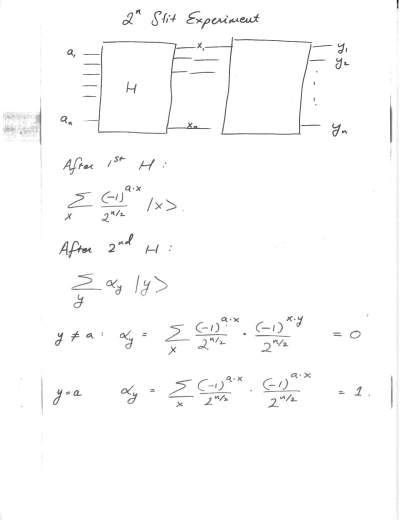 2ⁿ Slit Experiment
a₁ x₁ y₁
y₂
H
aₙ xₙ yₙ
After 1st H :
∑ₓ (-1)^{a·x} / 2^{n/2} |x>.
After 2nd H :
∑_y α_y |y>
y ≠ a : α_y = ∑ₓ (-1)^{a·x} / 2^{n/2} · (-1)^{x·y} / 2^{n/2} = 0
y=a α_y = ∑ₓ (-1)^{a·x} / 2^{n/2} · (-1)^{a·x} / 2^{n/2} = 1.